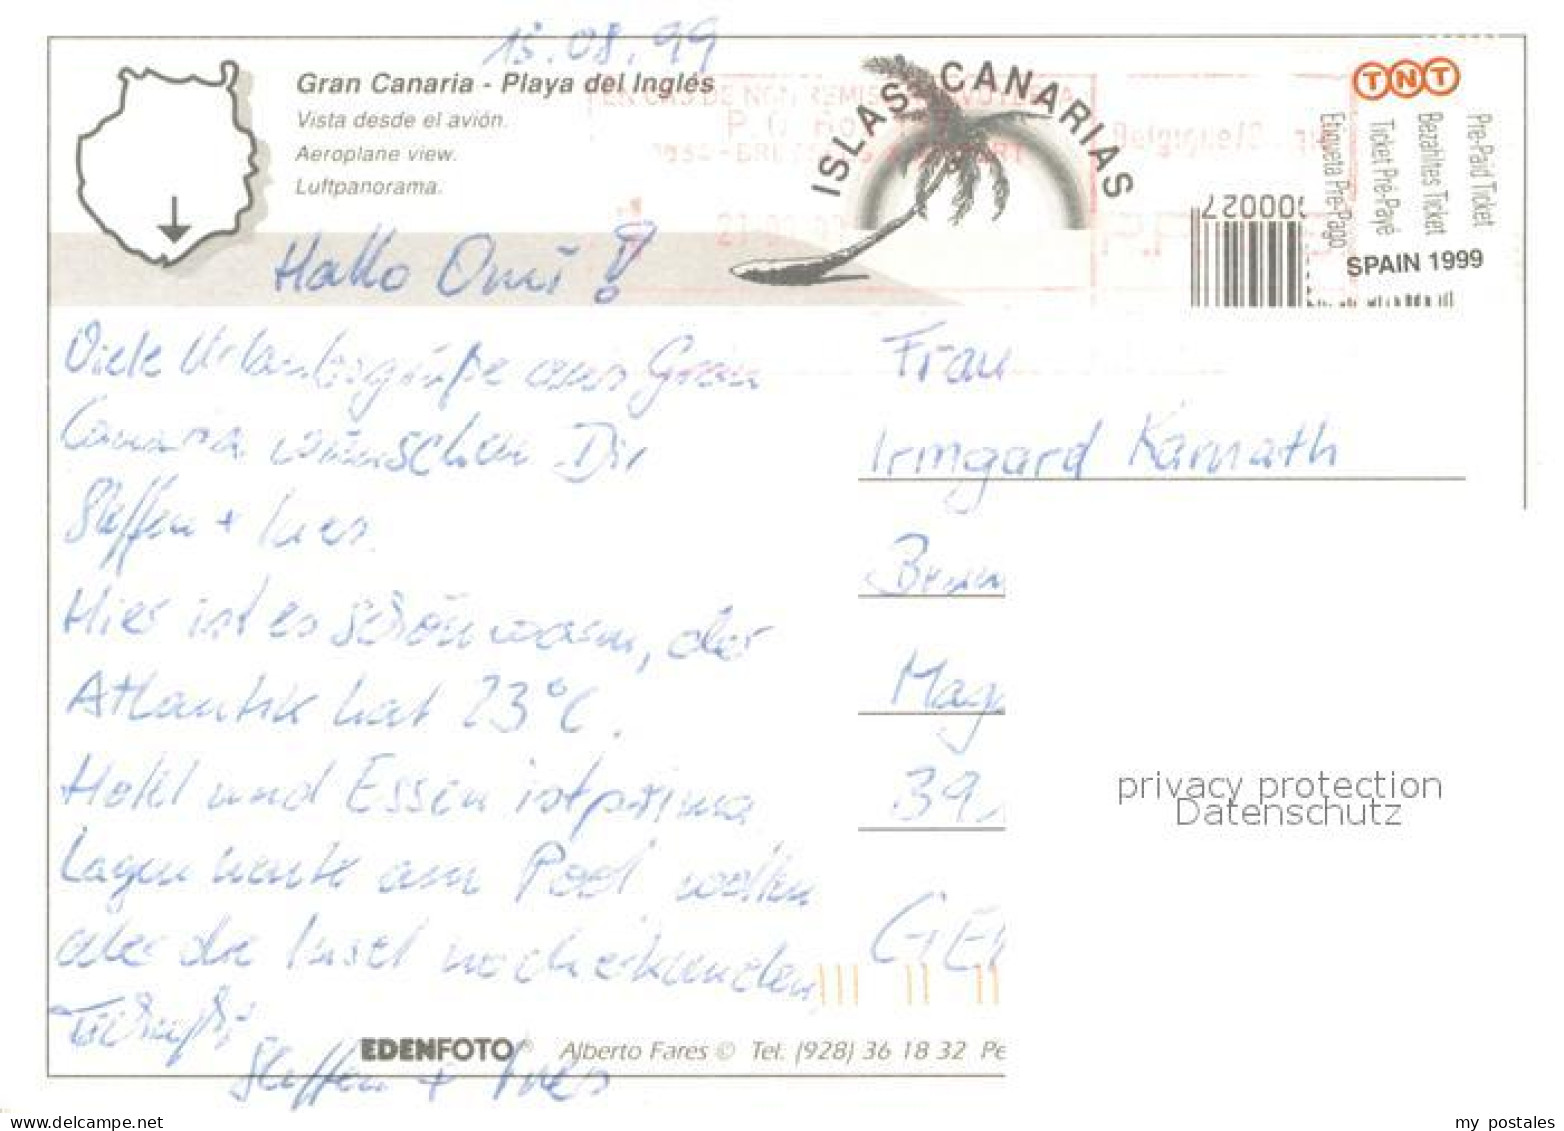 15.08.99
Gran Canaria - Playa del Inglés
Vista desde el avión.
Aeroplane view.
Luftpanorama.
ISLAS CANARIAS
TNT
Pre-Paid Ticket
Bezahltes Ticket
Ticket Pré-Payé
Etiqueta Pre-Pago
SPAIN 1999
Hallo Omi!
Viele Urlaubsgrüße aus Gran
Canaria wünschen Dir
Steffen + Ines.
Hier ist es schön warm, der
Atlantik hat 23°C.
Hotel und Essen ist prima
Lagen heute am Pool wollen
aber die Insel noch erkunden,
Tschüß
Steffen + Ines
Frau
Irmgard
Mag
39
GER
privacy protection
Datenschutz
EDENFOTO © Alberto Fares © Tel. (928) 36 18 32 Pe
delcampe.net
my_postales